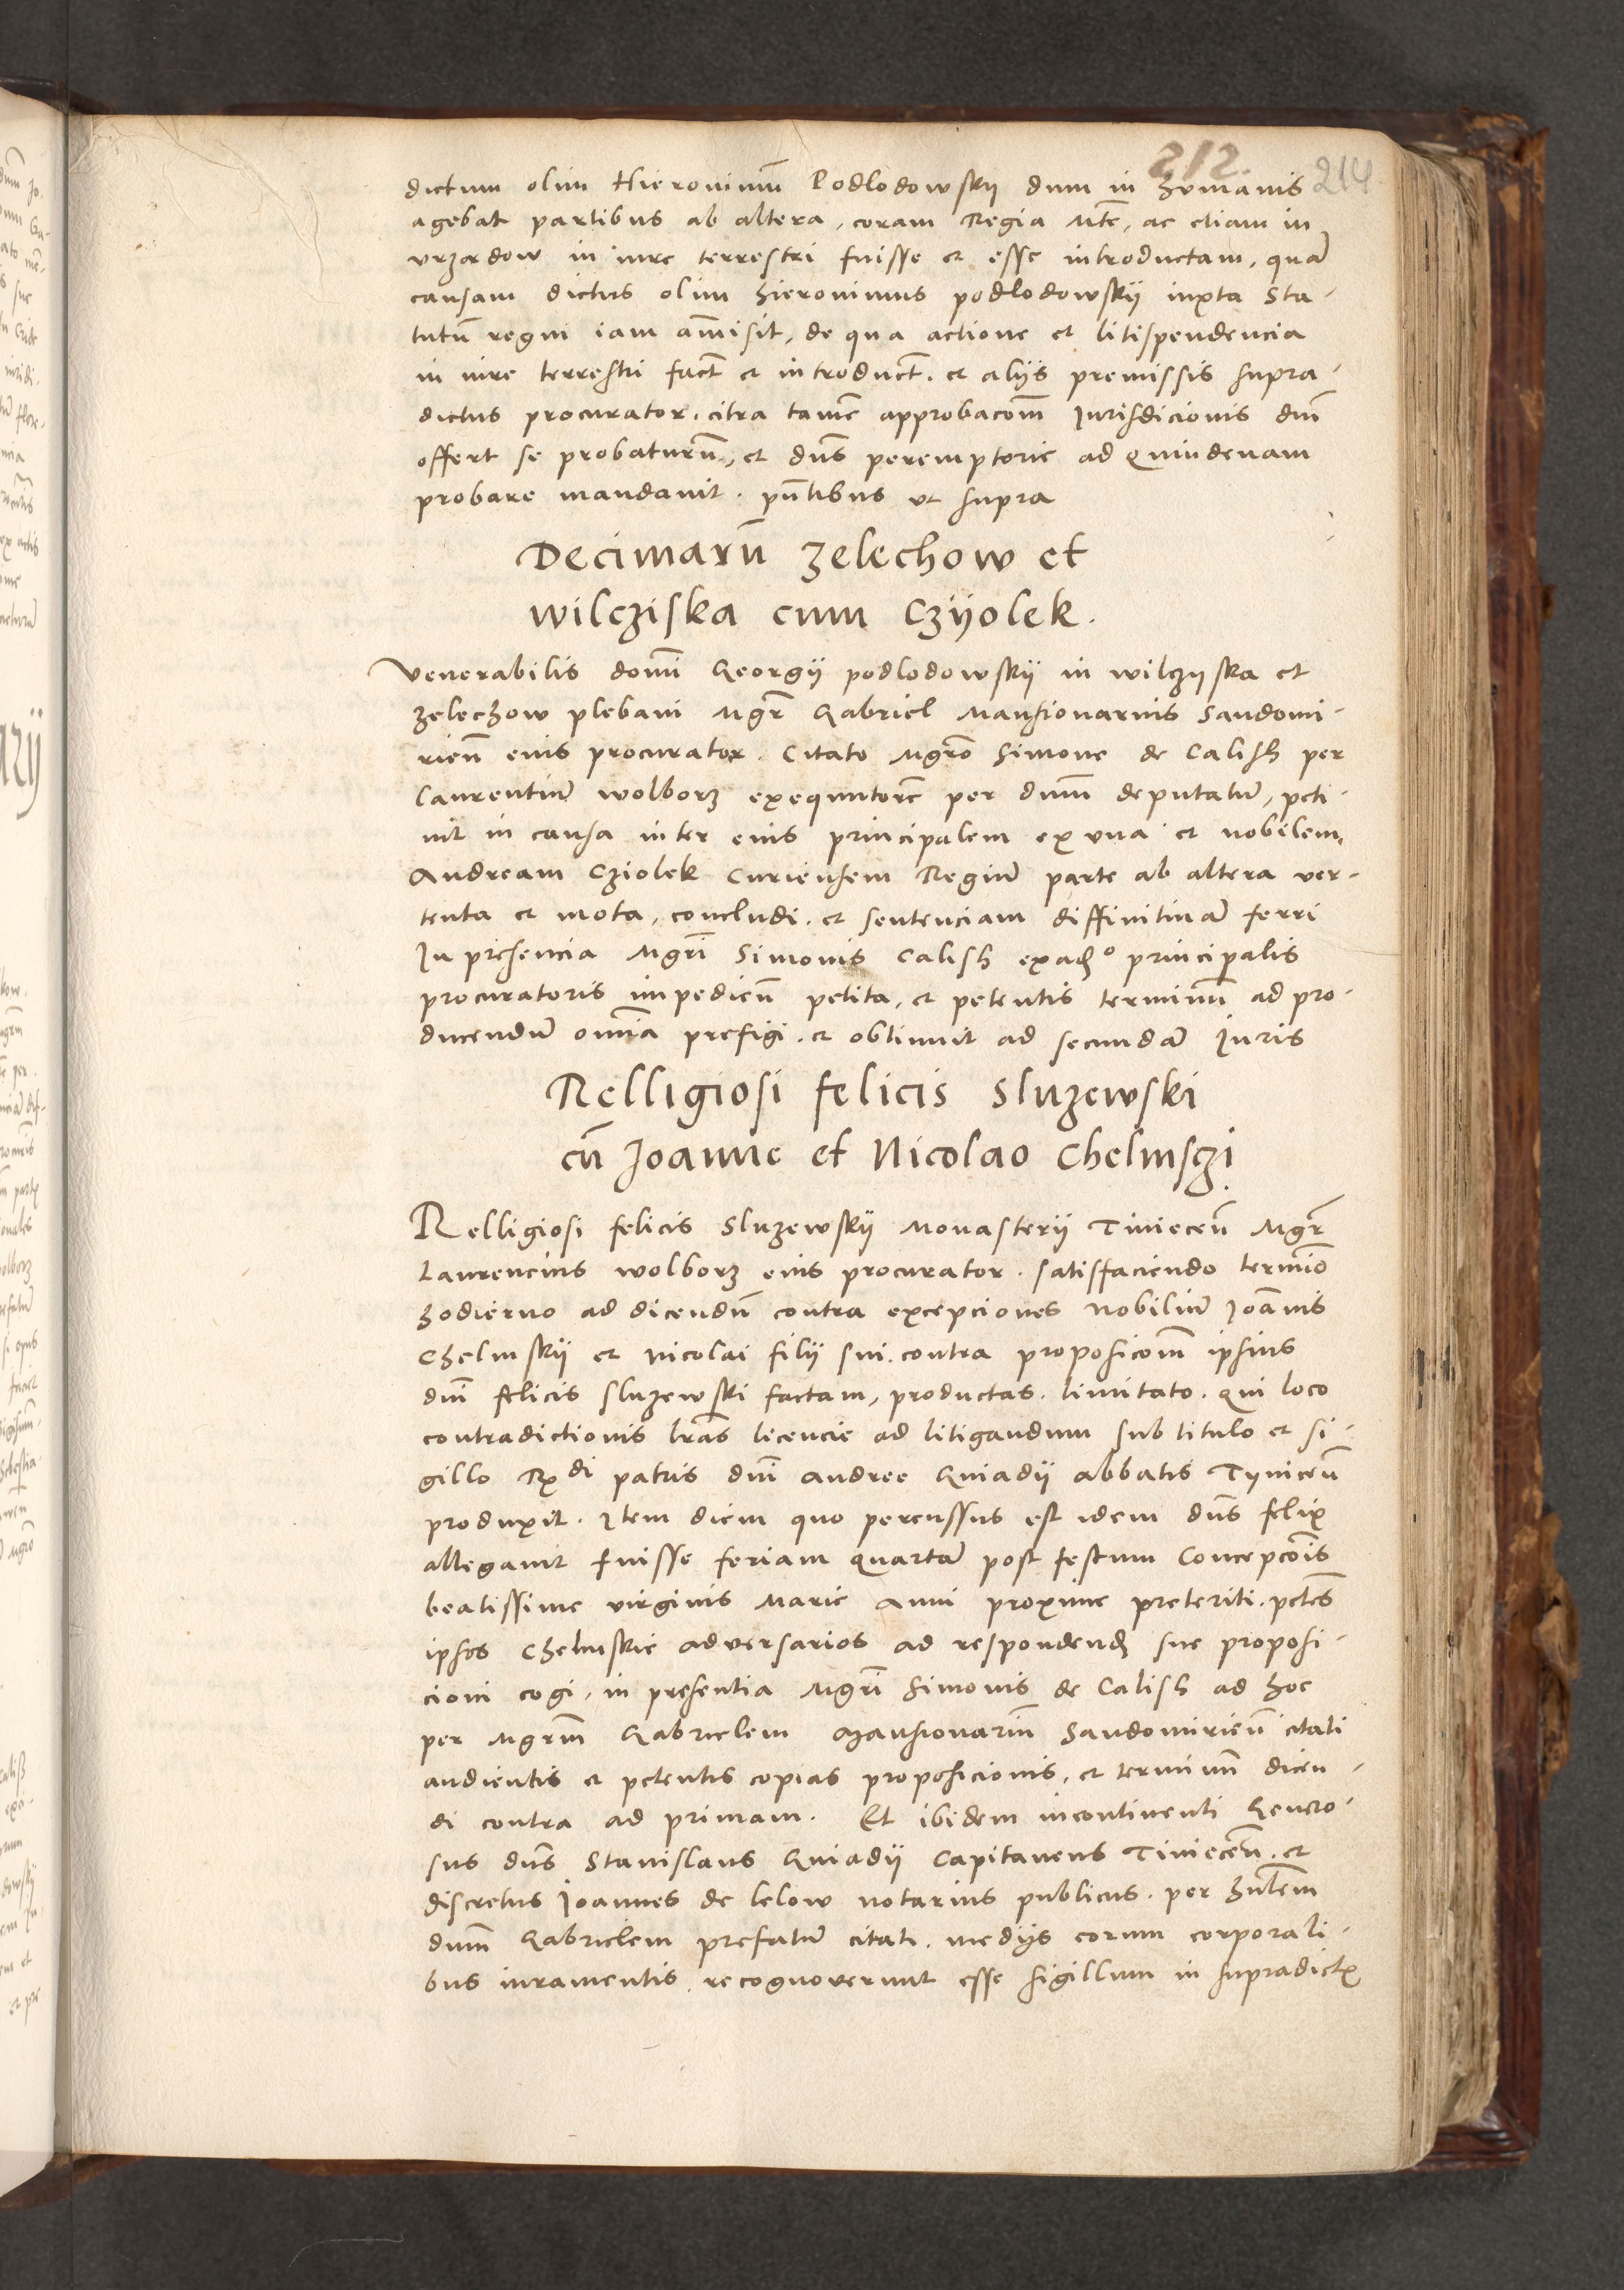 212. 214
dictum olim Hieronimum̄ Podlodowskÿ dum in humanis
agebat partibus ab altera, coram Regia Mte, ac etiam in
vrzędow in iure terrestri fuisse et esse introductam, quā
causam dictus olim Hieronimus podlodowskÿ iuxta Sta-
tutū regni iam am̄isit, de qua actione et litispendencia
in iure terrestri fact̄ et introduct̄. et alijs premissis supra-
dictus procurator. citra tamē approbacōm Jurisdicionis dnī
offert se probaturū, et dn̄s peremptorie ad quindenam
probare mandauit. pn̄tibus vt supra
Decimarū Zelechow et
Wilcziska cum Czÿolek.
Venerabilis domī Georgÿ podlodowskÿ in wilczyska et
zelechow plebani Mgr̄ Gabriel Mansionarius Sandomi-
rien̄ eius procurator. Citato Mgrō Simone de Calish per
Laurentiū wolborz exequutorē per dnm̄ deputatū, peti-
uit in causa inter eius principalem ex vna et nobilem
Andream Cziolek Curiensem Regiū parte ab altera ver-
tenta et mota, concludi. et sentenciam diffinitiuā ferri
In presencia Mgrī Simonis Calish exad° principalis
procuratoris impedien̄ petita, et petentis terminū ad pro-
ducendū om̄ia prefigi. et obtinuit ad secundā Juris
Relligiosi felicis Sluzewski
cū Joanne et Nicolao Chelmsczi
Relligiosi felicis Sluzewskÿ Monasterÿ Tiniecen̄ Mgr̄
Laurencius wolborz eius procurator. satisfaciendo termīo
hodierno ad dicendū contra excepciones Nobiliū Joānis
Chelmskÿ et Nicolai filÿ sui. contra proposicōm ipsius
dnī felicis sluzewski factam, productas. limitato. qui loco
contradictionis lrās licencie ad litigandum sub titulo et si-
gillo Rx di patris dnī andree Gniadÿ abbatis Tynicen̄
produxit. Item diem quo percussus est idem dn̄s felix
allegauit fuisse feriam quartā post festum Concepcōis
beatissime virginis Marie Anni proxime preteriti. petēs
ipsos Chelmskie aduersarios ad respondend sue proposi-
cioni cogi, in presentia Mgrī Simonis de Calish ad hoc
per Mgrm̄ Gabrielem Mansionariū Sandomirien̄ citati
audientis et petentis copias proposicionis, et terminū dicen-
di contra ad primam. Et ibidem incontinenti Genero-
sus dn̄s Stanislaus Gniadÿ Capitaneus Tiniecen̄. et
discretus Joannes de lelow notarius publicus. per hn̄lem
dnm̄ Gabrielem prefatū citati. medÿs eorum corporali-
bus iuramentis. recognouerunt esse sigillum in supradictꝭ